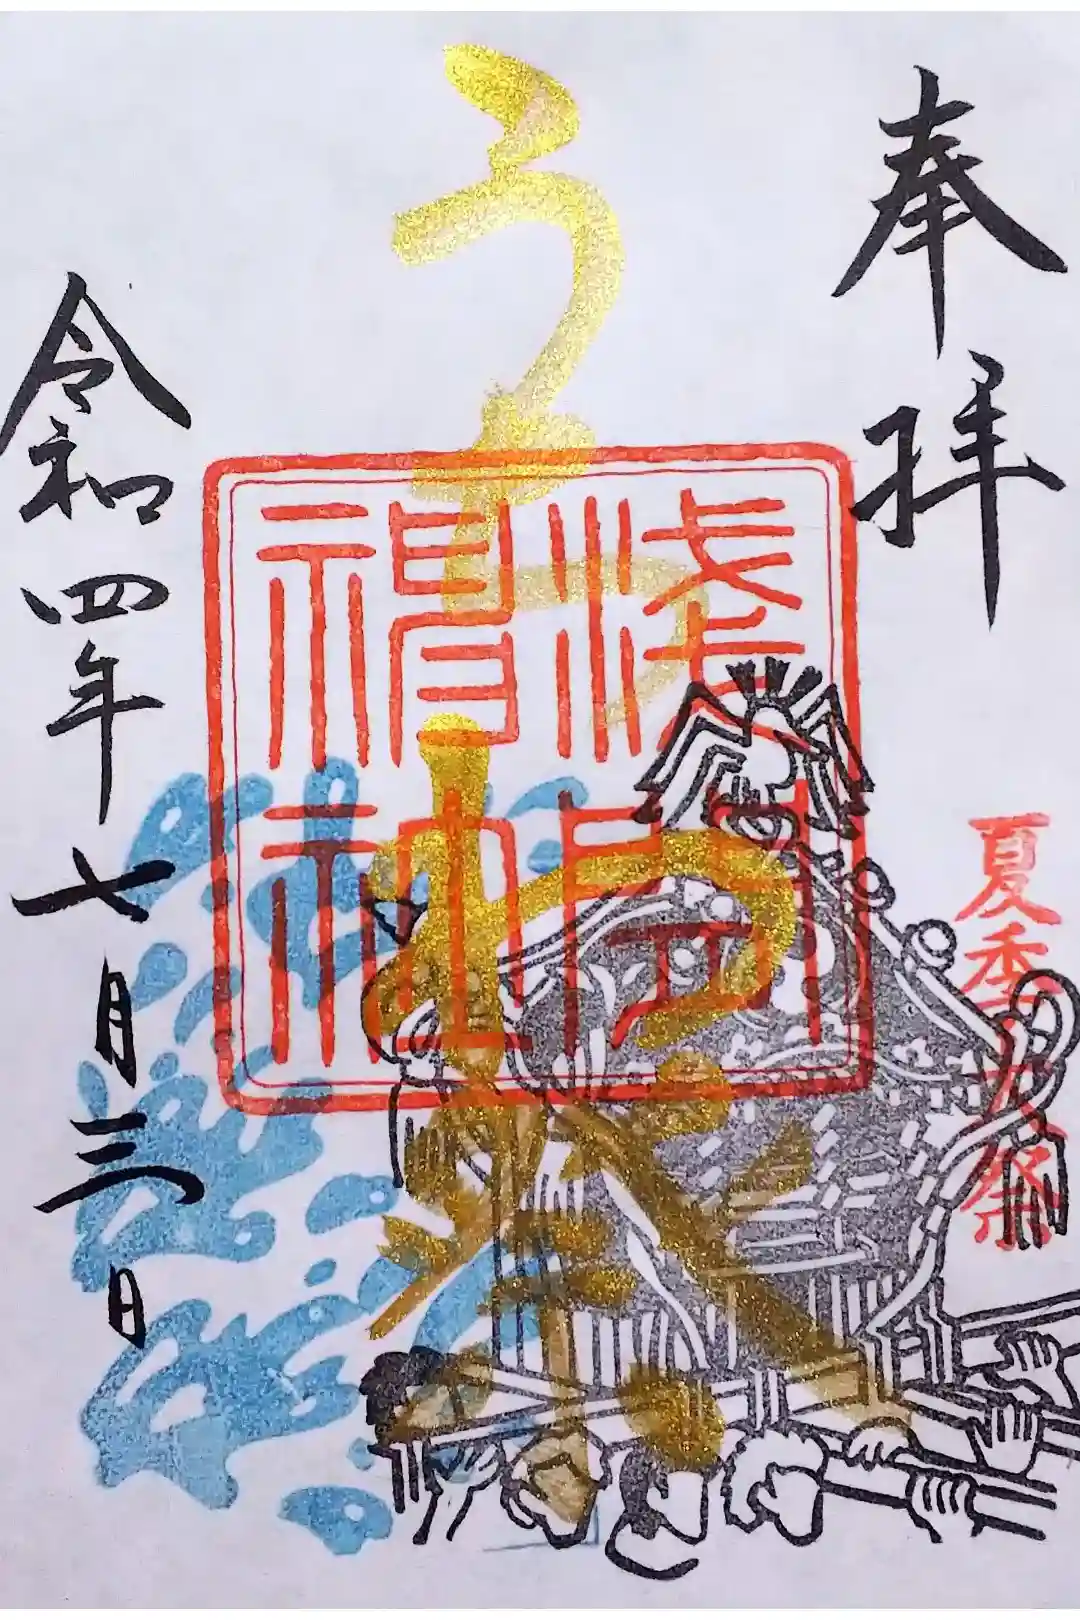 奉拝
夏季大祭
うちわ祭
浅間
神社
令和四年七月三日